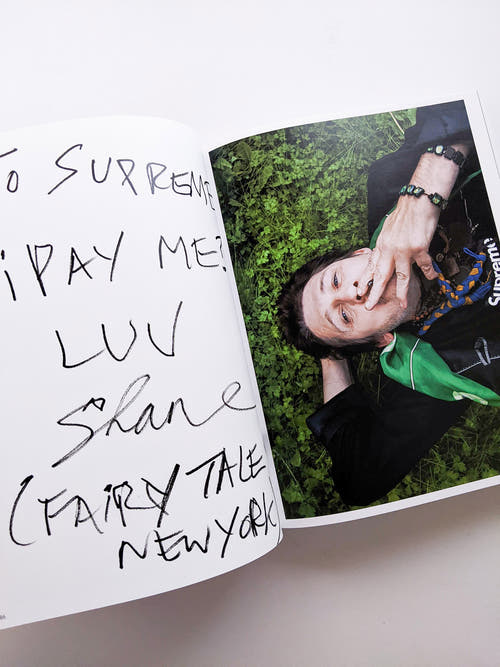 To SUPREME
¡PAY ME?
LUV
Shane
(FAIRY TALE
NEW YORK)
Supreme